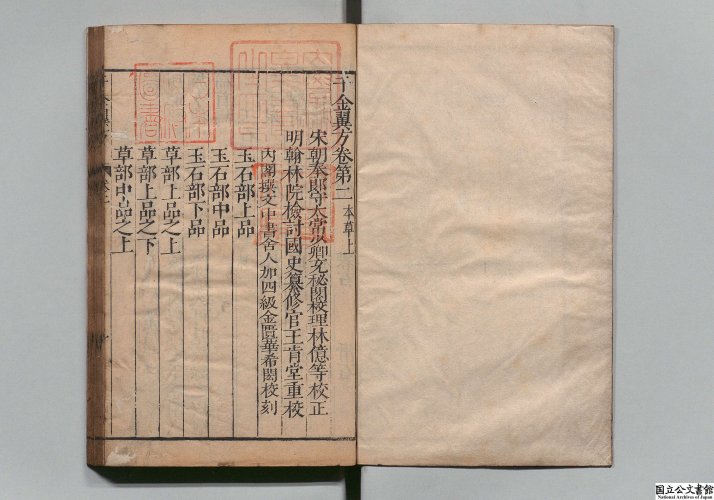 千金翼方卷第二 本草上
宋朝奉郎守太常少卿充秘閣校理林億等校正
明翰林院檢討國史纂修官王肯堂重校
內閣撰文中書舍人加四級金匱華希閎校刻
玉石部上品
玉石部中品
玉石部下品
草部上品之上
草部上品之下
草部中品之上
国立公文書館
National Archives of Japan